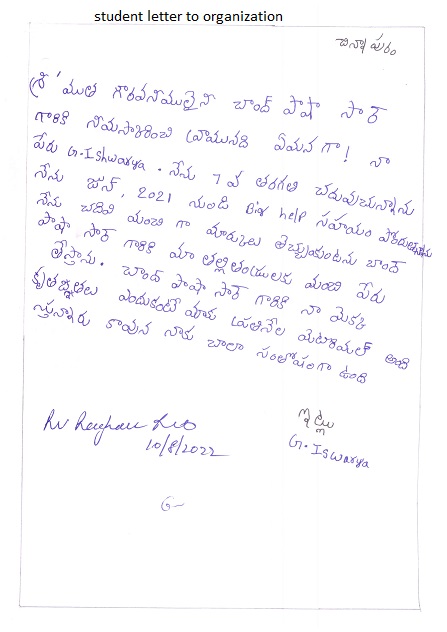 student letter to organization
చిన్నాపురం
శ్రీ'ముత గౌరవనీయులైన చాంద్ పాషా సార్
గారికి నమస్కారించి వ్రాయునది ఏమనగా! నా
పేరు G.Ishwarya. నేను 7వ తరగతి చదువుచున్నాను
నేను జూన్, 2021 నుండి Big help సహాయం పొందుతున్నాను
నేను చదివి మంచి గా మార్కులు తెచ్చుకుంటను చాంద్
పాషా సార్ గారికి మా తల్లితండ్రులకు మంచి పేరు
తెస్తాను. చాంద్ పాషా సార్ గారికి నా యొక్క
కృతజ్ఞతలు ఎందుకంటే మాకు ప్రతినెల మెటీరియల్ అంది
స్తున్నారు కావున నాకు చాలా సంతోషంగా ఉంది
ఇట్లు
G. Iswarya
10/8/2022